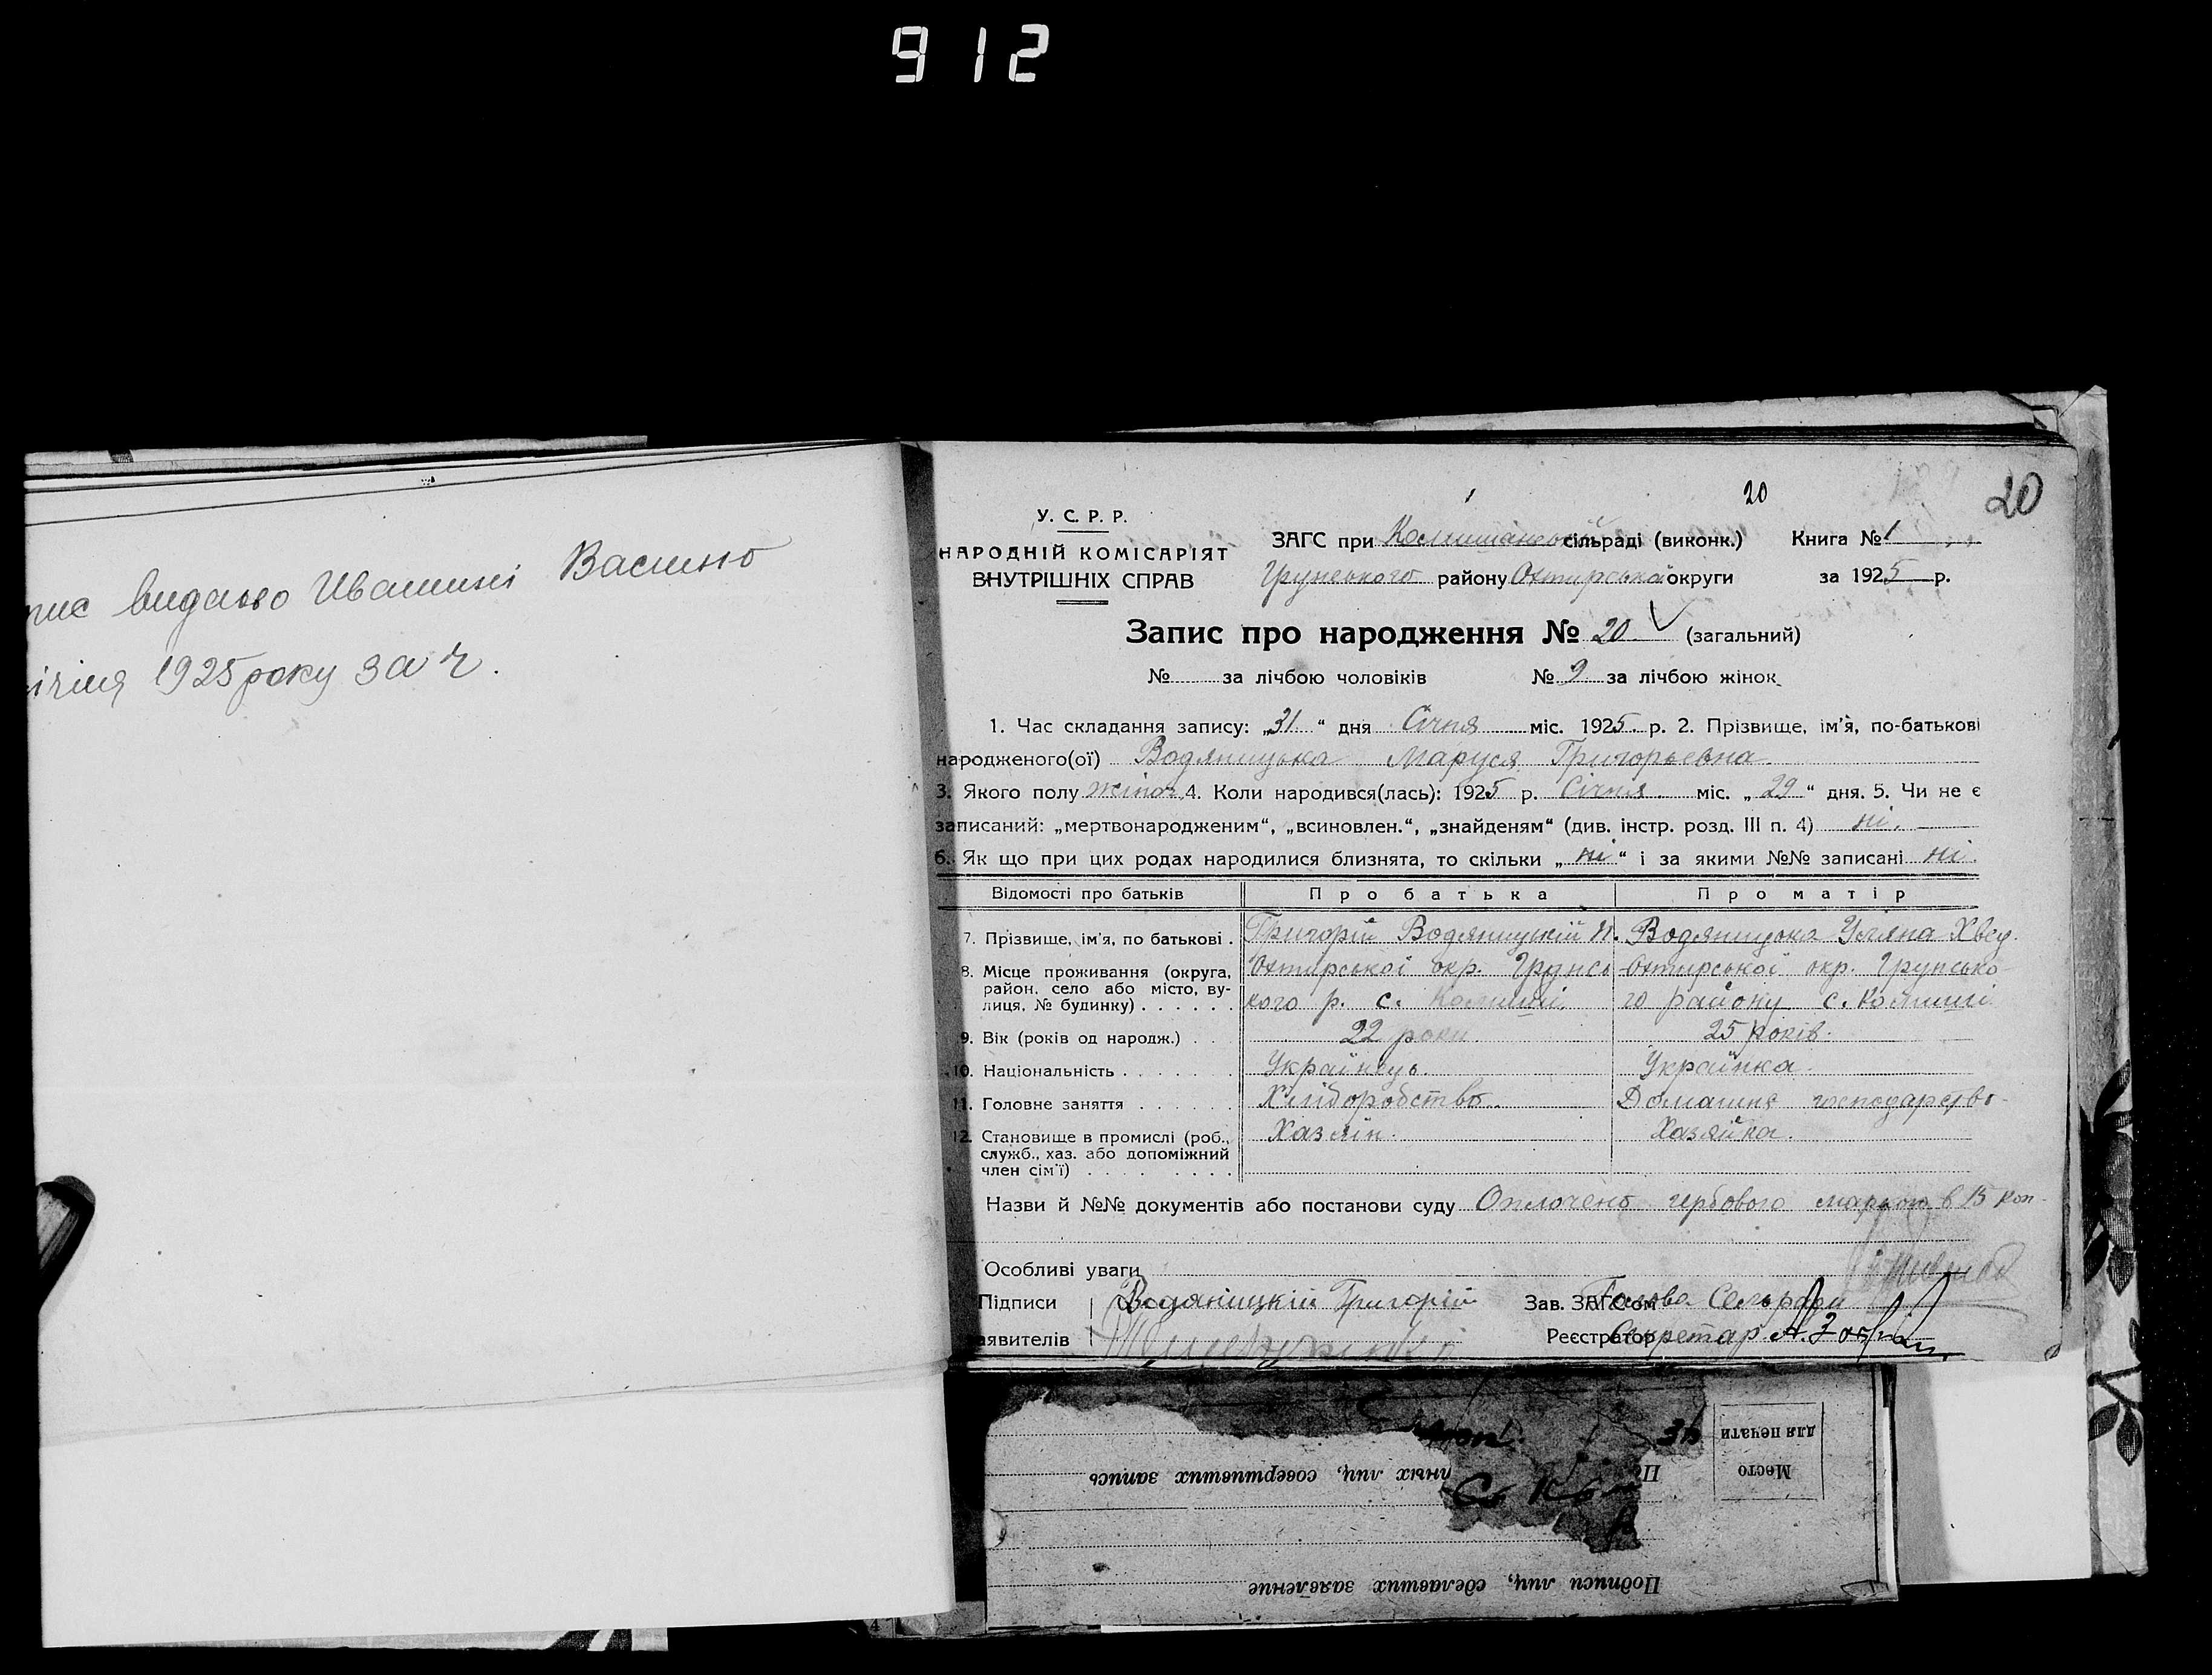 912
пис видано Ивашині Василю
ічня 1925 року за ч.
20
20
У. С. Р. Р.
НАРОДНІЙ КОМІСАРІЯТ
ВНУТРІШНІХ СПРАВ
ЗАГС при сільраді (виконк.) Книга № 1
Грунського району Охтирської округи за 1925 р.
Запис про народження № 20 (загальний)
№ за лічбою чоловіків № 9 за лічбою жінок
1. Час складання запису: „31“ дня Січня міс. 1925 р. 2. Прізвище, ім'я, по-батькові
народженого(ої) Водяницька Маруся Григорьевна
3. Якого полу жіноч. 4. Коли народився(лась): 1925 р. Січня міс. „29“ дня. 5. Чи не є
записаний: „мертвонародженим“, „всиновлен.“, „знайденям“ (див. інстр. розд. III п. 4) ні.
6. Як що при цих родах народилися близнята, то скільки „ні“ і за якими №№ записані ні.
Відомості про батьків Про батька Про матір
7. Прізвище, ім'я, по батькові . Григорій Водяницкій Водяницька Уляна Хвед.
8. Місце проживання (округа, Охтирської окр. Грунсь Охтирської окр. Грунсько-
район, село або місто, ву-
лиця, № будинку) . . . . . . кого р. с. Комиші. го району с. Комиші
9. Вік (років од народж.) . . 22 роки. 25 років.
10. Національність . . . . . . Українець. Українка.
11. Головне заняття . . . . . Хліборобство. Домашнє господарство-
12. Становище в промислі (роб., Хазяїн. Хазяйка.
служб., хаз. або допоміжний
член сім'ї) . . . . . . . . .
Назви й №№ документів або постанови суду Оплочено гербового маркою в 15 коп.
Особливі уваги
Підписи Водяніцкій Григорій Зав. ЗАГСом Голова Сельради
аявителів Реєстратор Секретар А.
для печати
Место
лных лиц, совершивших запись
Подписи лиц, сделавших заявление